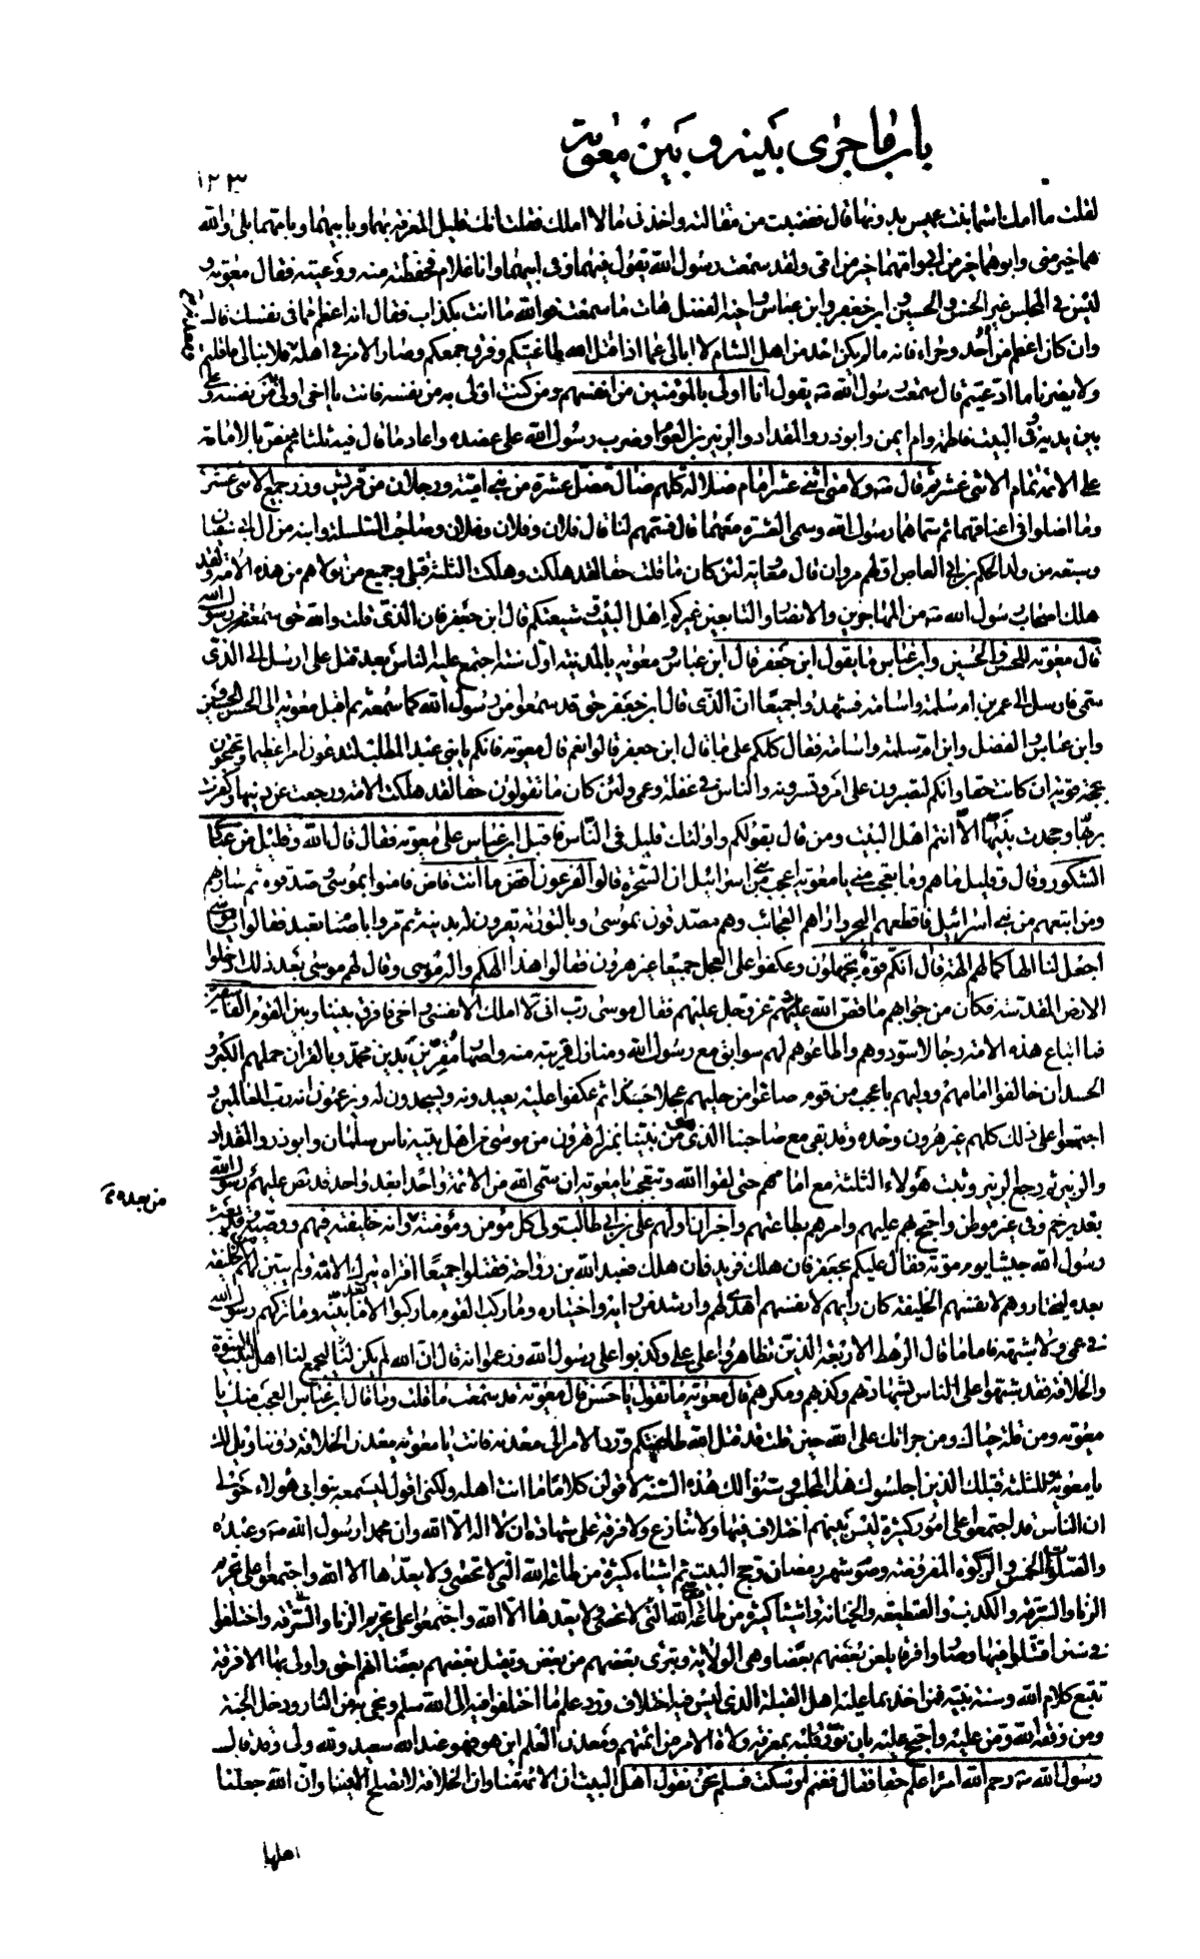 باب ما جرى بينه وبين معوية
١٢٣
فقلت ما امك اسماء بنت عميس بدونها قال فغضبت من مقالته واخذنى ما لا املك فقلت انك لقليل المعرفة بهما وبابيهما وبامهما بلى والله
هما خير منى وابوهما خير من ابى وامهما خير من امى ولقد سمعت رسول الله يقول فيهما وفى ابيهما وانا غلام فحفظته منه ووعيته فقال معوية و
ليس فى المجلس غير الحسن والحسين وابن جعفر وابن عباس واخيه الفضل هات ما سمعت فوالله ما انت بكذاب فقال انه اعظم مما فى نفسك قال
وان كان اعظم من أحد وحراء فانه ما لم يكن احد من اهل الشام لا ابالى اما اذا قتل الله طاغيتكم وفرق جمعكم وصار الامر فى اهله فلا نبالى ما قلتم
ولا يضرنا ما ادعيتم قال سمعت رسول الله صه يقول انا اولى بالمؤمنين من انفسهم ومن كنت اولى به من نفسه فانت يا اخى اولى به من نفسه وعلى
بين يديه فى البيت فاطمة وام ايمن وابوذر والمقداد والزبير بن العوام وضرب رسول الله على عضده واعاد ما قال فيه ثلثا ثم نص بالامامة
على الائمة تمام الاثنى عشر ثم قال صه ولامتى اثنى عشر امام ضلالة كلهم ضال مضل عشرة من بنى امية ورجلان من قريش وزر جميع الاثنى عشر
وما اضلوا فى اعناقهما ثم سماهما رسول الله وسمى العشرة معهما قال فسمهم لنا قال فلان وفلان وفلان وصاحب السلسلة وابنه من آل ابى سفيان
وسبعة من ولد الحكم بن ابى العاص اولهم مروان قال معاية لئن كان ما قلت حقا لقد هلكت وهلكت الثلثة قبلى وجميع من تولاهم من هذه الامة ولقد
هلك اصحاب رسول الله صه من المهاجرين والانصار والتابعين غيركم اهل البيت وشيعتكم قال ابن جعفر فان الذى قلت والله حق سمعته من رسول الله
قال معوية للحسن والحسين وابن عباس ما يقول ابن جعفر قال ابن عباس ومعوية بالمدينة اول سنة اجتمع عليه الناس بعد قتل على ارسل الى الذى
سمى فارسل الى عمر بن ام سلمة واسامة فشهدوا جميعا ان الذى قال ابن جعفر حق قد سمعوا من رسول الله كما سمعه ثم اقبل معوية الى الحسن والحسين
وابن عباس والفضل وابن ام سلمة واسامة فقال كلكم على ما قال ابن جعفر قالوا نعم قال معوية فانكم يا بنى عبد المطلب لتدعون امرا عظيما وتحتجون
بحجة قوية ان كانت حقا وانكم لتصبرون على امر وتسرونه والناس فى غفلة وعمى ولئن كان ما تقولون حقا لقد هلكت الامة ورجعت عن دينها وكفرت
بربها وجحدت نبيها الا انتم اهل البيت ومن قال بقولكم واولئك قليل فى الناس فاقبل ابن عباس على معوية فقال قال الله وقليل من عبادى
الشكور وقال وقليل ما هم وما تعجب منى يا معوية اعجب من بنى اسرائيل ان السحرة قالوا لفرعون اقض ما انت قاض فامنوا بموسى وصدقوه ثم سار بهم
ومن اتبعهم من بنى اسرائيل فاقطعهم البحر واراهم العجائب وهم مصدقون بموسى وبالتورية يقرون له بدينه ثم مروا باصنام تعبد فقالوا يا موسى
اجعل لنا الها كما لهم الهة قال انكم قوم تجهلون وعكفوا على العجل جميعا غير هرون فقالوا هذا الهكم واله موسى وقال لهم موسى بعد ذلك ادخلوا
الارض المقدسة فكان من جوابهم ما قص الله عليهم عز وجل عليهم فقال موسى رب انى لا املك الا نفسى واخى فافرق بيننا وبين القوم الفاسقين
فما اتباع هذه الامة رجالا سودوهم واطاعوهم لهم سوابق مع رسول الله ومنازل قريبة منه واصهار مقرين بدين محمد وبالقران حملهم الكبر و
الحسد ان خالفوا امامهم ووليهم باعجب من قوم صاغوا من حليهم عجلا جسدا ثم عكفوا عليه يعبدونه ويسجدون له ويزعمون انه رب العالمين و
اجتمعوا على ذلك كلهم غير هرون وحده وقد بقى مع صاحبنا الذى هو من نبينا بمنزلة هرون من موسى من اهل بيته ناس سلمان وابوذر والمقداد
والزبير ثم رجع الزبير وثبت هؤلاء الثلثة مع امامهم حتى لقوا الله وتتعجب يا معوية ان سمى الله من الائمة واحدا بعد واحد قد نص عليهم رسول الله
بغدير خم وفى غير موطن واحتج بهم عليهم وامرهم بطاعتهم واخبر ان اولهم على بن ابى طالب ولى كل مؤمن ومؤمنة من بعده وانه خليفته فيهم ووصيه وقد بعث
رسول الله جيشا يوم موتة فقال عليكم بجعفر فان هلك فزيد فان هلك فعبد الله بن رواحة فقتلوا جميعا افتراه يترك الامة ولم يبين لهم الخليفة
بعده ليختاروهم لانفسهم الخليفة كان رايهم لانفسهم اهدى لهم وارشد من رايه واختياره وما ركب القوم ما ركبوا الا بعد ما بينه وما تركهم رسول الله
فى عمى ولا شبهة فاما ما قال الرهط الاربعة الذين تظاهروا على على وكذبوا على رسول الله وزعموا انه قال ان الله لم يكن ليجمع لنا اهل البيت النبوة
والخلافة فقد شبهوا على الناس بشهادتهم وكذبهم ومكرهم قال معوية ما تقول يا حسن قال يا معوية قد سمعت ما قلت وما قال ابن عباس العجب منك يا
معوية ومن قلة حيائك ومن جراتك على الله حين قلت قد قتل الله طاغيتكم ورد الامر الى معدنه فانت يا معوية معدن الخلافة دوننا ويل لك
يا معوية وللثلثة قبلك الذين اجلسوك هذا المجلس وسنوا لك هذه السنة لاقولن كلاما ما انت اهله ولكنى اقول ليسمعه بنو ابى هؤلاء حولى
ان الناس قد اجتمعوا على امور كثيرة ليس بينهم اختلاف فيها ولا تنازع ولا فرقة على شهادة ان لا اله الا الله وان محمدا رسول الله صه وعبده
والصلوات الخمس والزكوة المفروضة وصوم شهر رمضان وحج البيت ثم اشياء كثيرة من طاعة الله التى لا تحصى ولا يعدها الا الله واجتمعوا على تحريم
الزنا والسرقة والكذب والقطيعة والخيانة واشياء كثيرة من معاصى الله التى لا تحصى ولا يعدها الا الله واجتمعوا على تحريم الزنا والسرقة واختلفوا
فى سنن اقتتلوا فيها وصاروا فرقا يلعن بعضهم بعضا وهى الولاية ويتبرى بعضهم من بعض ويقتل بعضهم بعضا ايهم احق واولى بها الا فرقة
تتبع كلام الله وسنة نبيه فمن اخذ بما عليه اهل القبلة الذى ليس فيه اختلاف ورد علم ما اختلفوا فيه الى الله سلم ونجى به من النار ودخل الجنة
ومن وفقه الله ومن عليه واحتج عليه بان نور قلبه بمعرفة ولاة الامر من ائمتهم ومعدن العلم اين هو فهو عند الله سعيد ولله ولى وقد قال
رسول الله صه رحم الله امرأ علم حقا فقال فغنم او سكت فسلم نحن نقول اهل البيت ان الائمة منا وان الخلافة لا تصلح الا فينا وان الله جعلنا
من بعده
اهلها